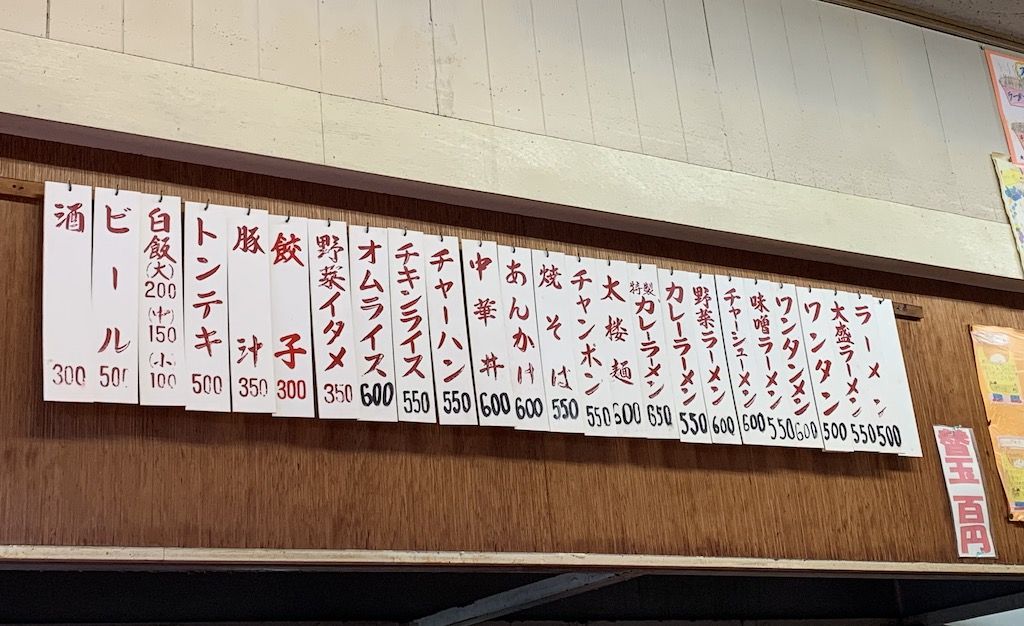 替玉百円
ラーメン 500
大盛ラーメン 550
ワンタン 500
ワンタンメン 600
味噌ラーメン 550
チャーシューメン 600
野菜ラーメン 600
カレーラーメン 550
特製カレーラーメン 650
太楼麺 600
チャンポン 550
焼そば 550
あんかけ 600
中華丼 600
チャーハン 550
チキンライス 550
オムライス 600
野菜イタメ 350
餃子 300
豚汁 350
トンテキ 500
白飯(大)200(中)150(小)100
ビール 500
酒 300